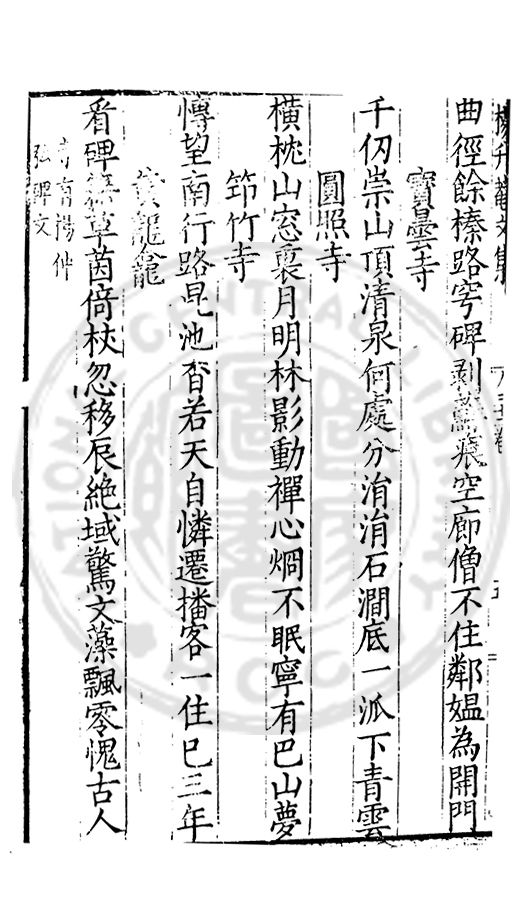 楊升菴文集 卷
曲徑餘榛路穹碑剥痕空廊僧不住鄰媼為開門
寶曇寺
千仞崇山頂清泉何處分涓涓石澗底一派下青雲
圓照寺
橫枕山窓裏月明林影動禪心烱不眠寧有巴山夢
筇竹寺
慱望南行路昆池杳若天自憐遷播客一住已三年
龍龕
看碑無草茵倚杖忽移辰絶域驚文藻飄零愧古人
寺有楊仲
弘碑文